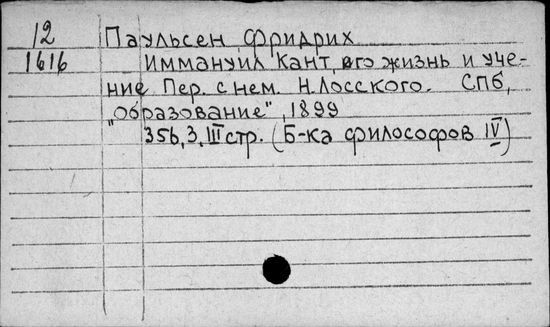 12 Паульсен, Фридрих
1616 Иммануил Кант, его жизнь и уче-
ние Пер. с нем. Н.Лосского. СПб,
"Образование", 1899
356,3,III стр. (Б-ка философов IV)